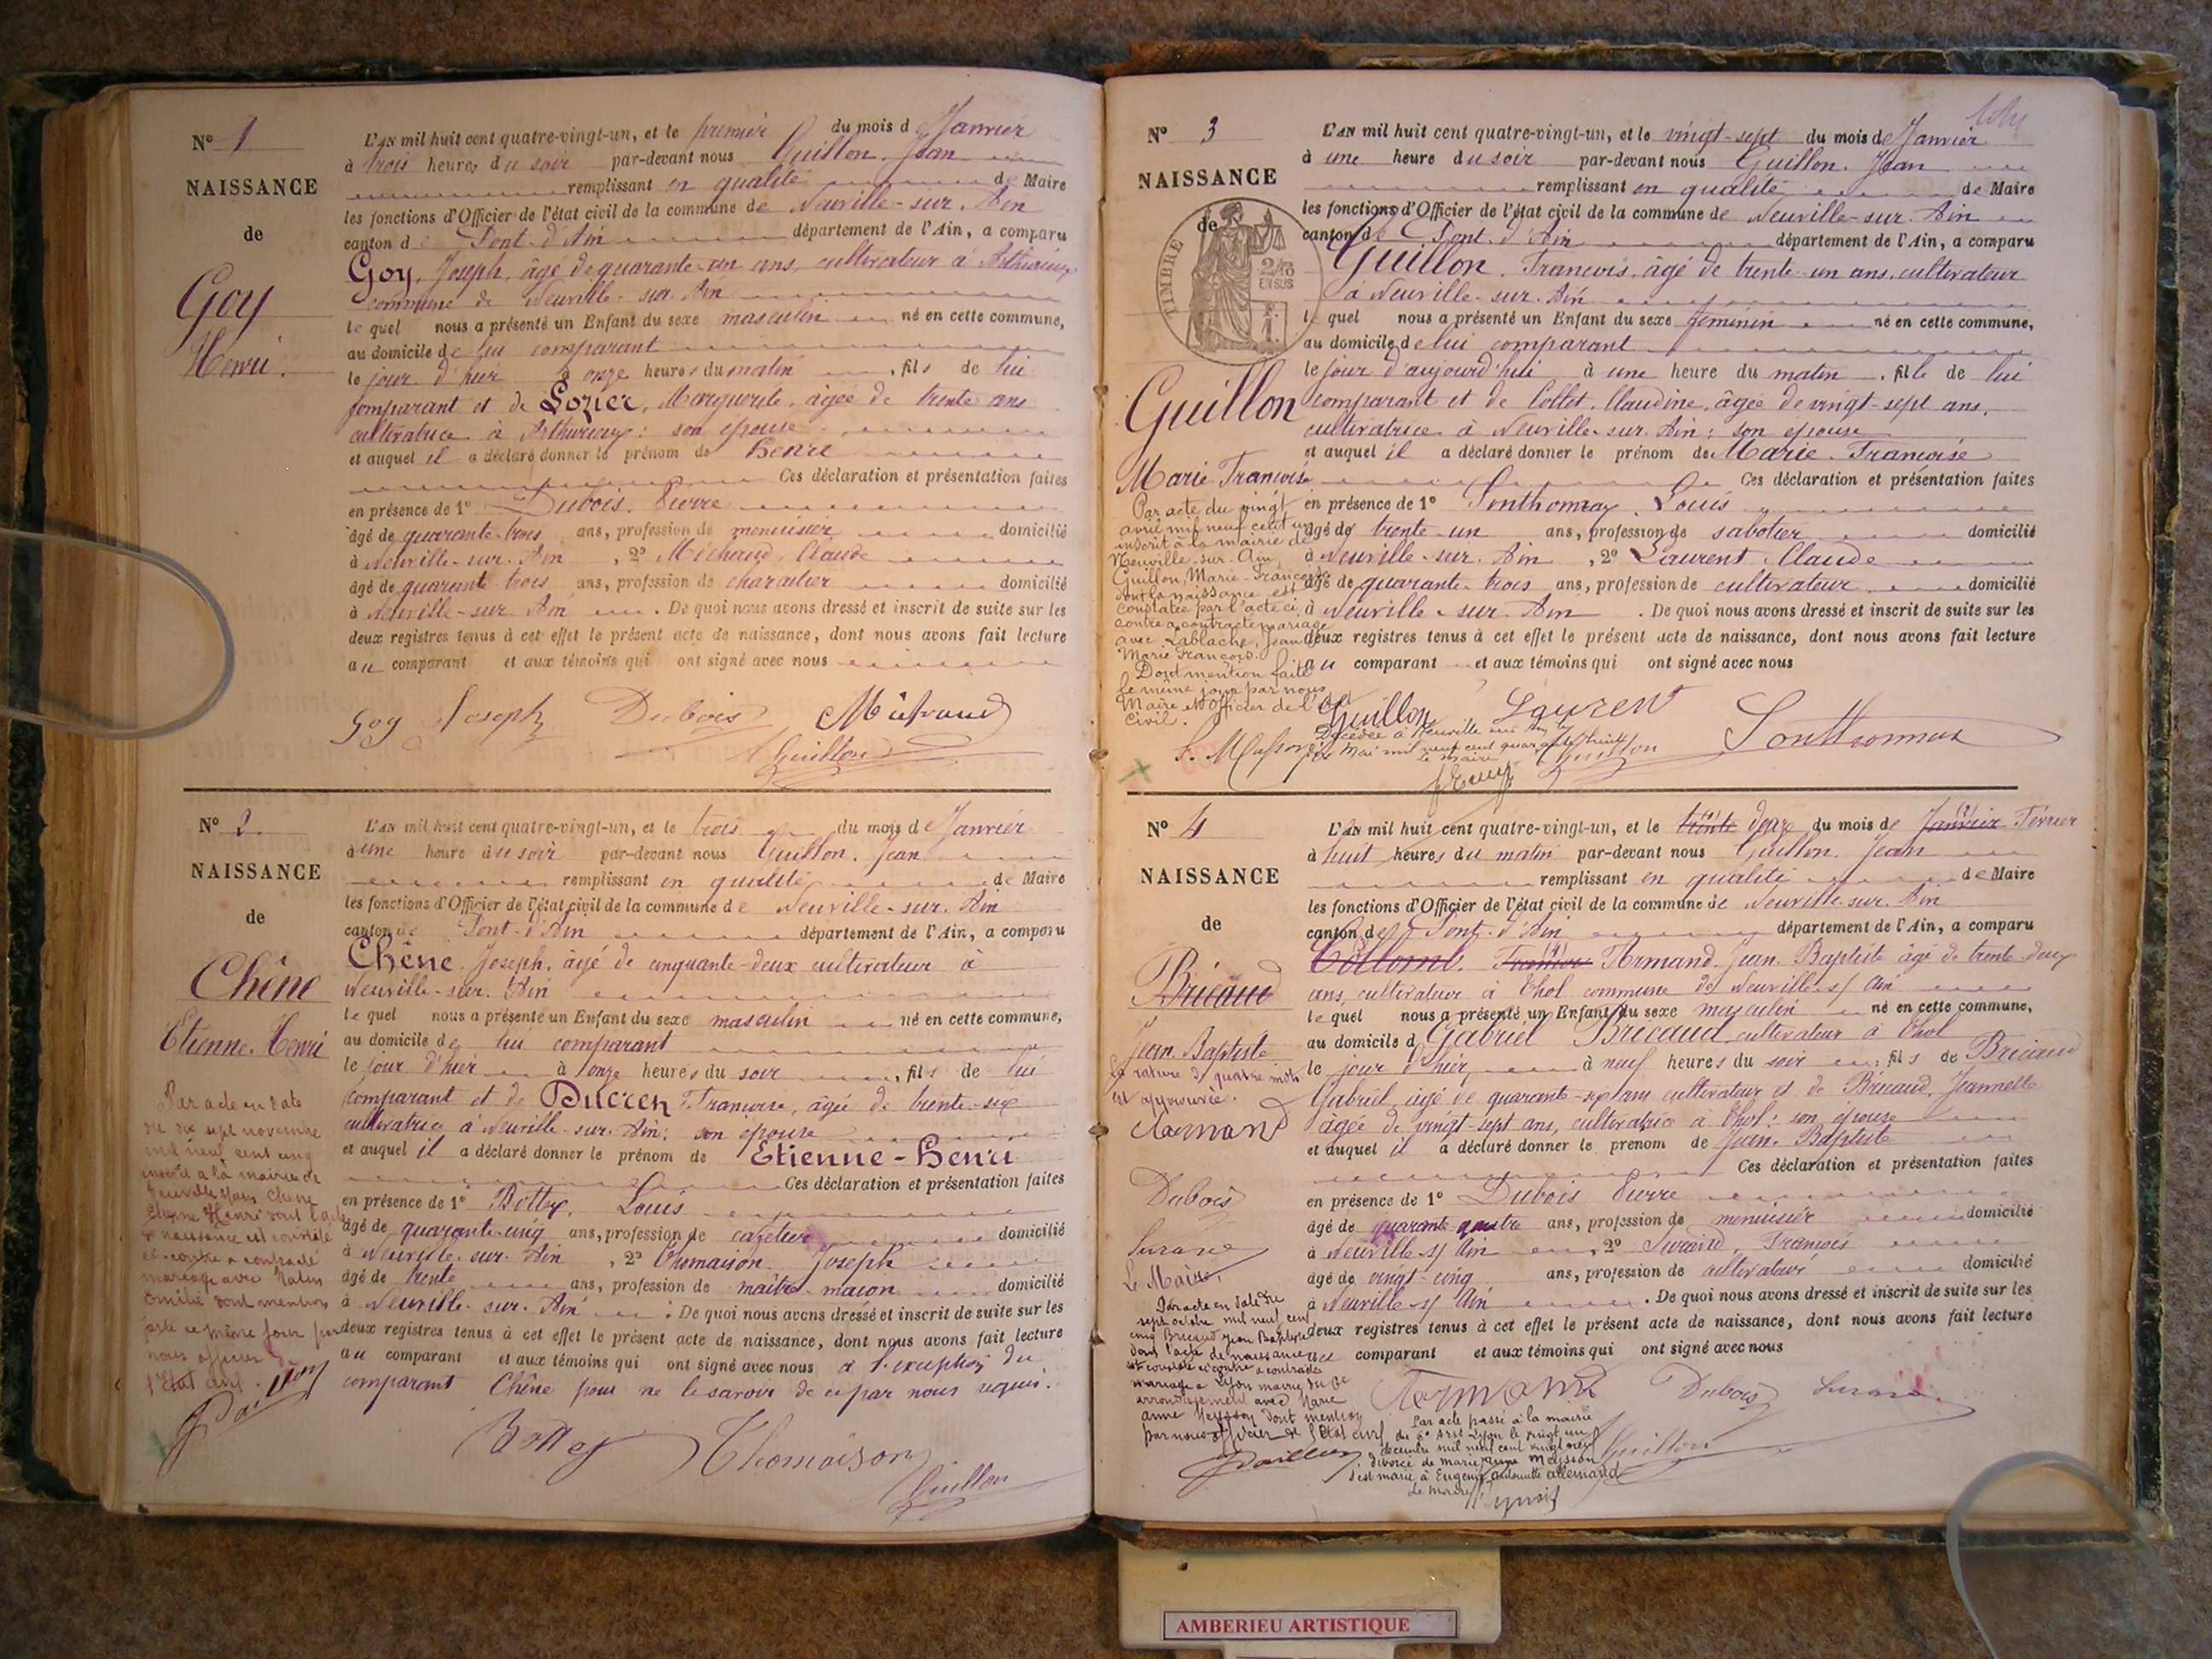 N° 1
NAISSANCE
de
Goy
Henri.
L'AN mil huit cent quatre-vingt-un, et le premier du mois de Janvier
à trois heures du soir par-devant nous Guillon, Jean
remplissant en qualité de Maire
les fonctions d'Officier de l'état civil de la commune de Neuville-sur-Ain
canton de Pont-d'Ain département de l'Ain, a comparu
Goy, Joseph, âgé de quarante-un ans, cultivateur à
commune de Neuville-sur-Ain
lequel nous a présenté un Enfant du sexe masculin né en cette commune,
au domicile de lui comparant
le jour d'hier à onze heures du matin, fils de lui
comparant et de Lozier, Marguerite, âgée de trente ans
cultivatrice à son épouse
et auquel il a déclaré donner le prénom de Henri
Ces déclaration et présentation faites
en présence de 1° Dubois, Pierre
âgé de quarante-trois ans, profession de menuisier domicilié
à Neuville-sur-Ain, 2° Michaud, Claude
âgé de quarante-trois ans, profession de domicilié
à Neuville-sur-Ain. De quoi nous avons dressé et inscrit de suite sur les
deux registres tenus à cet effet le présent acte de naissance, dont nous avons fait lecture
au comparant et aux témoins qui ont signé avec nous
Goy Joseph Dubois Michaud
Guillon
N° 2.
NAISSANCE
de
Chêne
Etienne-Henri
Par acte en date
du dix sept novembre
mil neuf cent cinq
inscrit à la mairie de
Neuville s/Ain Chêne
Etienne Henri dont l'acte
de naissance est constaté
ci-contre a contracté
mariage avec
Emilie dont mention
faite ce même jour par
nous officier de
l'Etat civil.
L'AN mil huit cent quatre-vingt-un, et le trois du mois de Janvier
à une heure du soir par-devant nous Guillon, Jean
remplissant en qualité de Maire
les fonctions d'Officier de l'état civil de la commune de Neuville-sur-Ain
canton de Pont-d'Ain département de l'Ain, a comparu
Chêne, Joseph, âgé de cinquante-deux cultivateur à
Neuville-sur-Ain
lequel nous a présenté un Enfant du sexe masculin né en cette commune,
au domicile de lui comparant
le jour d'hier à onze heures du soir, fils de lui
comparant et de Ducren Françoise, âgée de trente-six
cultivatrice à Neuville-sur-Ain: son épouse
et auquel il a déclaré donner le prénom de Etienne-Henri
Ces déclaration et présentation faites
en présence de 1° Bottex, Louis
âgé de quarante-cinq ans, profession de domicilié
à Neuville-sur-Ain, 2° Thomaison Joseph
âgé de trente ans, profession de maître-maçon domicilié
à Neuville-sur-Ain. De quoi nous avons dressé et inscrit de suite sur les
deux registres tenus à cet effet le présent acte de naissance, dont nous avons fait lecture
au comparant et aux témoins qui ont signé avec nous à l'exception du
comparant Chêne pour ne le savoir de ce par nous requis.
Bottex Thomaison
Guillon
N° 3
NAISSANCE
de
TIMBRE
2/10 EN SUS
Guillon
Marie-Françoise
Par acte du vingt
avril mil neuf cent un
inscrit à la mairie de
Neuville-sur-Ain,
Guillon, Marie-Françoise
dont la naissance est
constatée par l'acte ci-
contre a contracté mariage
avec Lablache, Jean
Marie François.
Dont mention faite
le même jour par nous
Maire et Officier de l'état
civil.
L'AN mil huit cent quatre-vingt-un, et le vingt-sept du mois de Janvier
à une heure du soir par-devant nous Guillon, Jean
remplissant en qualité de Maire
les fonctions d'Officier de l'état civil de la commune de Neuville-sur-Ain
canton de Pont-d'Ain département de l'Ain, a comparu
Guillon, François, âgé de trente-un ans, cultivateur
à Neuville-sur-Ain
lequel nous a présenté un Enfant du sexe féminin né en cette commune,
au domicile de lui comparant
le jour d'aujourd'hui à une heure du matin, fille de lui
comparant et de Collet, Claudine, âgée de vingt-sept ans,
cultivatrice à Neuville-sur-Ain: son épouse
et auquel il a déclaré donner le prénom de Marie-Françoise
Ces déclaration et présentation faites
en présence de 1° Louis
âgé de trente-un ans, profession de sabotier domicilié
à Neuville-sur-Ain, 2° Laurent, Claude
âgé de quarante-trois ans, profession de cultivateur domicilié
à Neuville-sur-Ain. De quoi nous avons dressé et inscrit de suite sur les
deux registres tenus à cet effet le présent acte de naissance, dont nous avons fait lecture
au comparant et aux témoins qui ont signé avec nous
Guillon Laurent
Décédée à Neuville sur Ain le
mai mil neuf cent quarante huit
le maire
Guillon
N° 4
NAISSANCE
de
Bricaud
Jean Baptiste
La rature de quatre mots
est approuvée.
Armand
Dubois
Le Maire,
Par acte en date du
sept octobre mil neuf cent
cinq Bricaud Jean Baptiste
dont l'acte de naissance
est constaté ci-contre a contracté
mariage à Lyon mairie du 6e
arrondissement avec Marie
anne Meysson dont mention
par nous officier de l'Etat civil
L'AN mil huit cent quatre-vingt-un, et le trente deux du mois de Janvier Février
à huit heures du matin par-devant nous Guillon, Jean
remplissant en qualité de Maire
les fonctions d'Officier de l'état civil de la commune de Neuville-sur-Ain
canton de Pont-d'Ain département de l'Ain, a comparu
Collomb, Armand Jean-Baptiste âgé de trente-deux
ans, cultivateur à Thol commune de Neuville s/ Ain
lequel nous a présenté un Enfant du sexe masculin né en cette commune,
au domicile de Gabriel Bricaud cultivateur à Thol
le jour d'hier, à neuf heures du soir, fils de Bricaud
Gabriel, âgé de quarante-six ans cultivateur et de Bricaud, Jeannette
âgée de vingt-sept ans, cultivatrice à Thol: son épouse
et auquel il a déclaré donner le prénom de Jean-Baptiste
Ces déclaration et présentation faites
en présence de 1° Dubois Pierre
âgé de quarante-quatre ans, profession de menuisier domicilié
à Neuville s/ Ain, 2° François
âgé de vingt-cinq ans, profession de cultivateur domicilié
à Neuville s/ Ain. De quoi nous avons dressé et inscrit de suite sur les
deux registres tenus à cet effet le présent acte de naissance, dont nous avons fait lecture
au comparant et aux témoins qui ont signé avec nous
Armand Dubois
Par acte passé à la mairie
du 6e Arrt Lyon le vingt un
décembre mil neuf cent
divorcé de marie anne Meysson
s'est marié à Eugénie antoinette allemand
Le maire
Guillon
AMBERIEU ARTISTIQUE